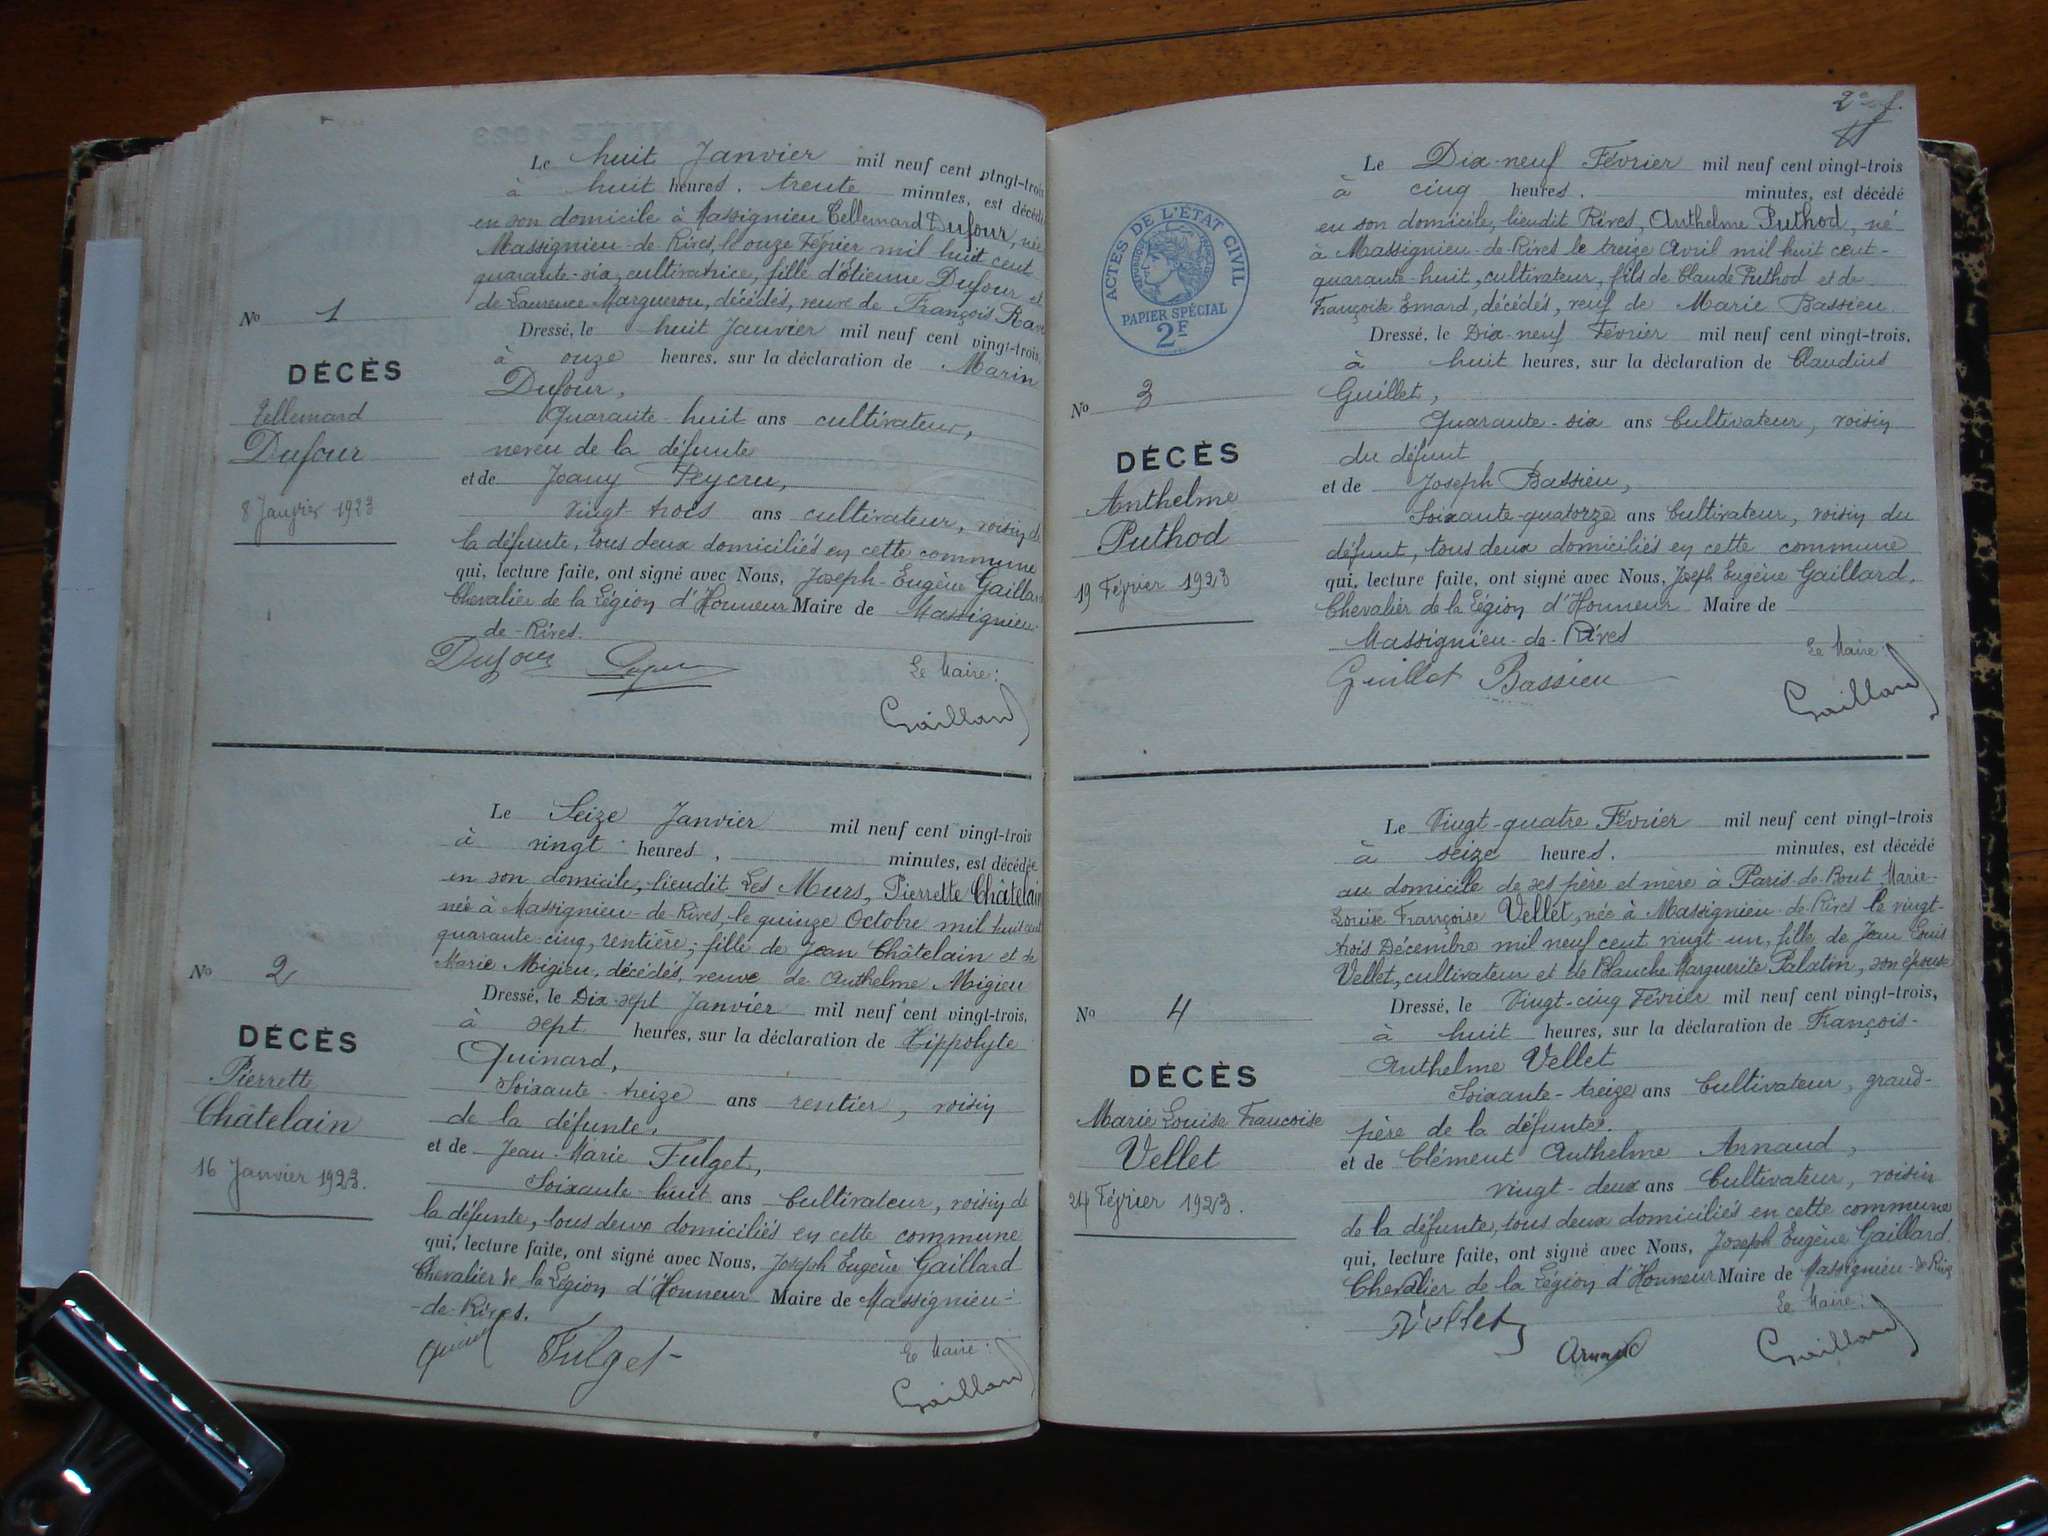 Le huit Janvier mil neuf cent vingt-trois
à huit heures. trente minutes, est décédé
en son domicile à Massignieu Tellemard Dufour, née
Massignieu-de-Rives, le onze Février mil huit cent
quarante-six, cultivatrice, fille d'Etienne Dufour et
de Laurence Marguerou, décédés, veuve de François
No 1
Dressé, le huit Janvier mil neuf cent vingt-trois,
à onze heures, sur la déclaration de Marin
DÉCÈS
Dufour,
Tellemard
Quarante-huit ans cultivateur,
Dufour
neveu de la défunte
et de Joany Peycru,
8 Janvier 1923
Vingt-trois ans cultivateur, voisin de
la défunte, tous deux domiciliés en cette commune
qui, lecture faite, ont signé avec Nous, Joseph-Eugène Gaillard
Chevalier de la Légion d'Honneur Maire de Massignieu-
de-Rives.
Dufour
Le Maire:
Gaillard
Le Seize Janvier mil neuf cent vingt-trois
à vingt heures, minutes, est décédée
en son domicile, lieudit Les Murs, Pierrette Châtelain
née à Massignieu-de-Rives, le quinze Octobre mil huit cent
quarante-cinq, rentière; fille de Jean Châtelain et de
Marie Migieu, décédés, veuve de Anthelme Migieu
No 2
Dressé, le Dix-sept Janvier mil neuf cent vingt-trois,
à sept heures, sur la déclaration de Hippolyte
DÉCÈS
Quinard,
Pierrett
Soixante-treize ans rentier, voisin
Châtelain
de la défunte,
et de Jean-Marie Fulget,
16 Janvier 1923.
Soixante-huit ans Cultivateur, voisin de
la défunte, tous deux domiciliés en cette commune
qui, lecture faite, ont signé avec Nous, Joseph Eugène Gaillard
Chevalier de la Légion d'Honneur Maire de Massignieu-
-de-Rives.
Fulget
Le Maire:
Gaillard
2e
Le Dix-neuf Février mil neuf cent vingt-trois
à cinq heures. minutes, est décédé
en son domicile, lieudit Rives, Anthelme Puthod, né
à Massignieu-de-Rives le treize Avril mil huit cent-
quarante-huit, cultivateur, fils de Claude Puthod et de
Françoise Emard, décédés, veuf de Marie Bassieu.
ACTES DE L'ÉTAT CIVIL
RÉPUBLIQUE FRANÇAISE
PAPIER SPÉCIAL
2F
Dressé, le Dix-neuf Février mil neuf cent vingt-trois,
à huit heures, sur la déclaration de Claudius
No 3
Guillet,
Quarante-six ans Cultivateur, voisin
DÉCÈS
du défunt
Anthelme
et de Joseph Bassieu,
Puthod
Soixante-quatorze ans Cultivateur, voisin du
défunt, tous deux domiciliés en cette commune
19 Février 1923
qui, lecture faite, ont signé avec Nous, Joseph Eugène Gaillard,
Chevalier de la Légion d'Honneur Maire de
Massignieu-de-Rives
Guillet Bassieu
Le Maire:
Gaillard
Le Vingt-quatre Février mil neuf cent vingt-trois
à seize heures. minutes, est décédé
au domicile de ses père et mère à Paris-de-Bout Marie-
Louise Françoise Vellet, née à Massignieu-de-Rives le vingt-
trois Décembre mil neuf cent vingt un, fille de Jean Louis
Vellet, cultivateur et de Blanche Marguerite Palatin, son épouse
No 4
Dressé, le Vingt-cinq Février mil neuf cent vingt-trois,
à huit heures, sur la déclaration de François-
DÉCÈS
Anthelme Vellet
Marie Louise Francoise
Soixante-treize ans Cultivateur, grand-
père de la défunte.
Vellet
et de Clément Anthelme Arnaud,
24 Février 1923.
vingt-deux ans Cultivateur, voisin
de la défunte, tous deux domiciliés en cette commune
qui, lecture faite, ont signé avec Nous, Joseph Eugène Gaillard.
Chevalier de la Légion d'Honneur Maire de Massignieu-de-Rives
Vellet
Arnaud
Le Maire:
Gaillard